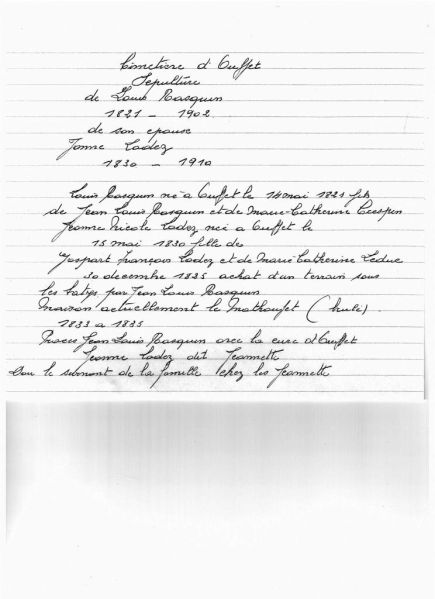 Cimetière d Ouffet
Sepulture
de Louis Rasquin
1821 - 1902
de son epouse
Jeanne Ladez
1830 - 1910
Louis Rasquin né a Ouffet le 14 mai 1821 fils
de Jean Louis Rasquin et de Marie-Catherine Crespin
Jeanne Nicole Ladez née a Ouffet le
15 mai 1830 fille de
Gaspart françois Ladez et de Marie Catherine Leduc
30 decembre 1835 achat d'un terrain sous
les par Jean Louis Rasquin
Maison actuellement le Mathoufet (brulé).
1833 a 1835
Proces Jean Louis Rasquin avec la cure d'Ouffet
Jeanne Ladez dit Jeannette
Dou le surnont de la famille chez les Jeannette